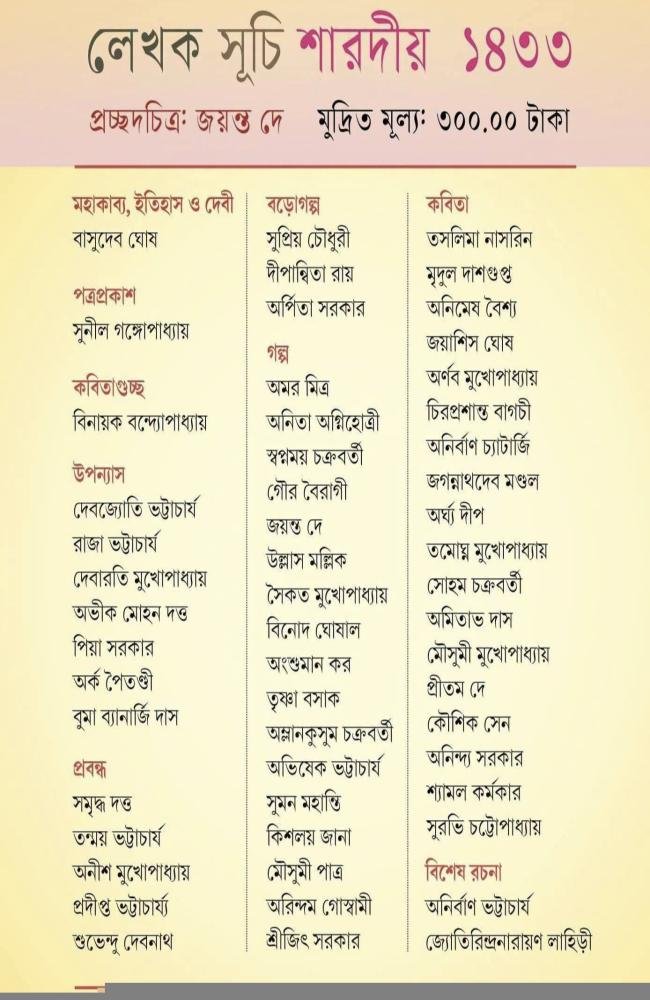 লেখক সূচি শারদীয় ১৪৩৩
প্রচ্ছদচিত্র: জয়ন্ত দে মুদ্রিত মূল্য: ৩০০.০০ টাকা
মহাকাব্য, ইতিহাস ও দেবী
বাসুদেব ঘোষ
পত্রপ্রকাশ
সুনীল গঙ্গোপাধ্যায়
কবিতাগুচ্ছ
বিনায়ক বন্দ্যোপাধ্যায়
উপন্যাস
দেবজ্যোতি ভট্টাচার্য
রাজা ভট্টাচার্য
দেবারতি মুখোপাধ্যায়
অভীক মোহন দত্ত
পিয়া সরকার
অর্ক পৈতণ্ডী
বুমা ব্যানার্জি দাস
প্রবন্ধ
সমৃদ্ধ দত্ত
তন্ময় ভট্টাচার্য
অনীশ মুখোপাধ্যায়
প্রদীপ্ত ভট্টাচার্য্য
শুভেন্দু দেবনাথ
বড়োগল্প
সুপ্রিয় চৌধুরী
দীপান্বিতা রায়
অর্পিতা সরকার
গল্প
অমর মিত্র
অনিতা অগ্নিহোত্রী
স্বপ্নময় চক্রবর্তী
গৌর বৈরাগী
জয়ন্ত দে
উল্লাস মল্লিক
সৈকত মুখোপাধ্যায়
বিনোদ ঘোষাল
অংশুমান কর
তৃষ্ণা বসাক
অম্লানকুসুম চক্রবর্তী
অভিষেক ভট্টাচার্য
সুমন মহান্তি
কিশলয় জানা
মৌসুমী পাত্র
অরিন্দম গোস্বামী
শ্রীজিৎ সরকার
কবিতা
তসলিমা নাসরিন
মৃদুল দাশগুপ্ত
অনিমেষ বৈশ্য
জয়াশিস ঘোষ
অর্ণব মুখোপাধ্যায়
চিরপ্রশান্ত বাগচী
অনির্বাণ চ্যাটার্জি
জগন্নাথদেব মণ্ডল
অর্ঘ্য দীপ
তমোঘ্ন মুখোপাধ্যায়
সোহম চক্রবর্তী
অমিতাভ দাস
মৌসুমী মুখোপাধ্যায়
প্রীতম দে
কৌশিক সেন
অনিন্দ্য সরকার
শ্যামল কর্মকার
সুরভি চট্টোপাধ্যায়
বিশেষ রচনা
অনির্বাণ ভট্টাচার্য
জ্যোতিরিন্দ্রনারায়ণ লাহিড়ী